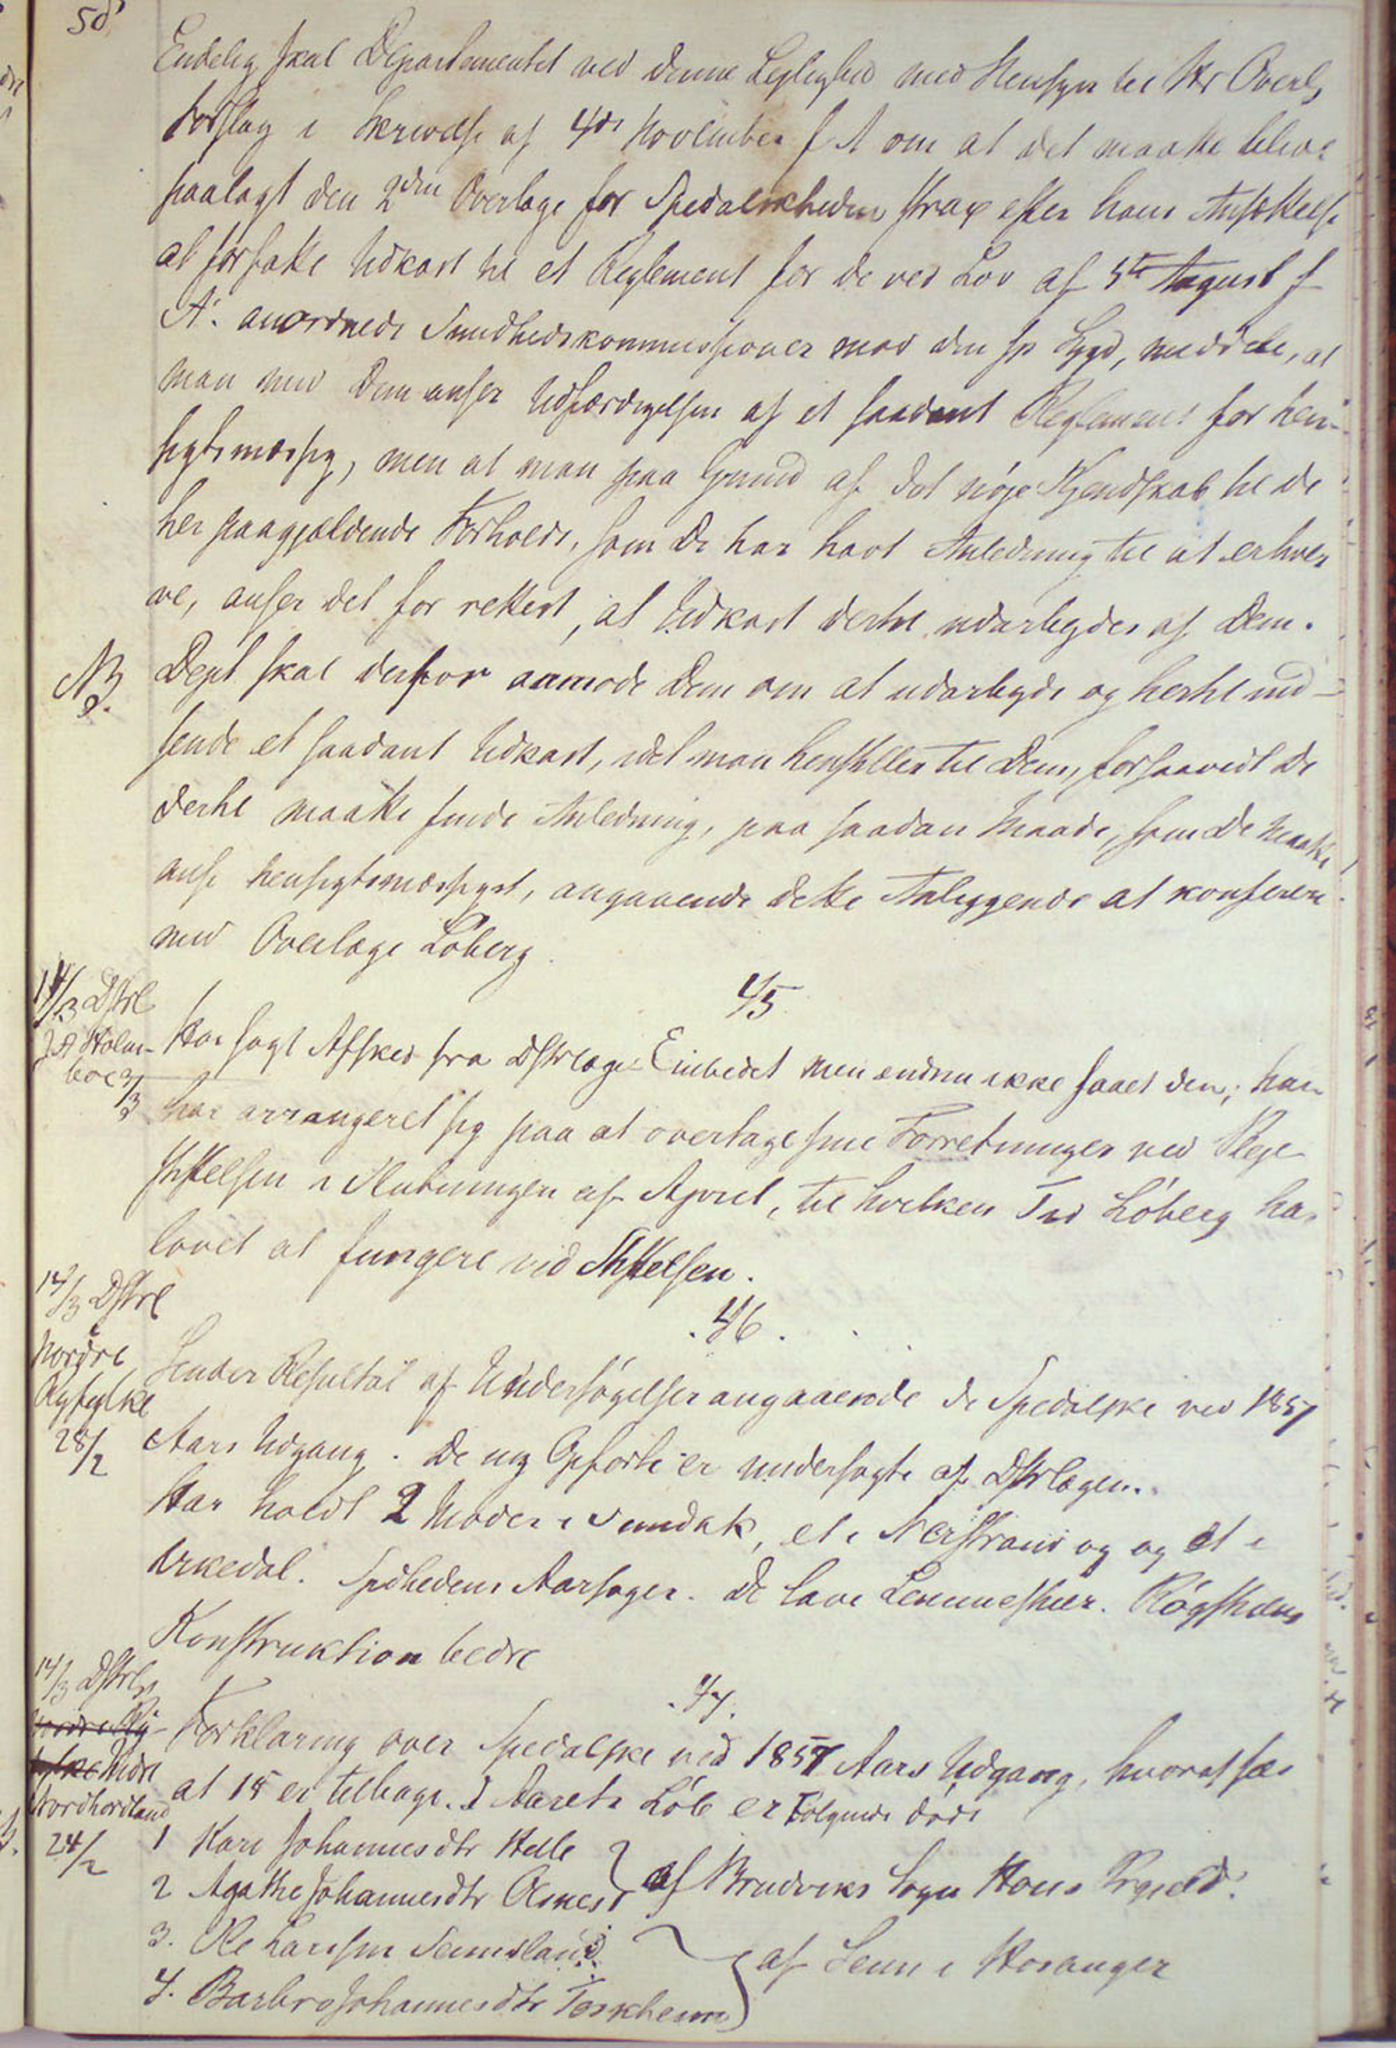 58
Endelig skal Departementet ved denne Leilighed med Hensyn til Hr Overls
Forslag i Skrivelse af 4de November f A om at det maatte blive
paalagt den 2den Overlæge for Spedalskheden strax efter hans Ansættelse
at forfatte Udkast til et Reglement for de ved Lov af 5te August f
A. anordnede Sundhedskommissioner mod den sp Sygd, meddele, at
man med Dem anser Udfærdigelsen af et saadant Reglement for hen-
sigtsmæssig, men at man paa Grund af det nøje Kjendskab til de
her paagjældende Forholde, som De har havt Anledning til at erhver
ve, anser det for rettest, at Udkast dertil udarbejdes af Dem.
NB. Dept skal derfor anmode Dem om at udarbejde og hertil ind-
sende et saadant Udkast, idet man henstiller til Dem, forsaavidt De
dertil maatte finde Anledning, paa saadan Maade, som De maatte
anse hensigtsmæssigst, angaaende dette Anliggende at konferere
med Overlæge Løberg.
45
14/3 Dstrl
J A Holm-
boe 3/3
Har søgt Afsked fra Dstrlæge-Embedet men endnu ikke faaet den; han
har arrangeret sig paa at overtage sine Forretninger ved Pleje
stiftelsen i Slutningen af April, til hvilken Tid Løberg har
lovet at fungere ved Stiftelsen.
46.
14/3 Dstrl
i
Nordre
Ryfylke
28/2
Sender Resultat af Undersøgelser angaaende de Spedalske ved 1857
Aars Udgang. De ny Opførte er undersøgte af Dstrlægen.
Har holdt 2 Møder i Sundhk, et i Nerstrand og og et i
Årkedal. Spdhedens Aarsager. De lave Lemmestuer. Røgstuens
Konstruktion bedre
47.
14/3 Dstrl
Nordre Ry-
fylke Indre
Nordhordland
24/2
Forklaring over Spedalske ved 1857 Aars Udgang, hvoraf sees
at 15 er tilbage. I Aarets Løb er Følgende døde
1 Kari Johannesdtr Helle
2 Agathe Johannesdtr Olsnes } af Bruviks Sogn Hous Prgjeld.
3. Ole Larssen
4. Barbro Johannesdtr } af i Hosanger